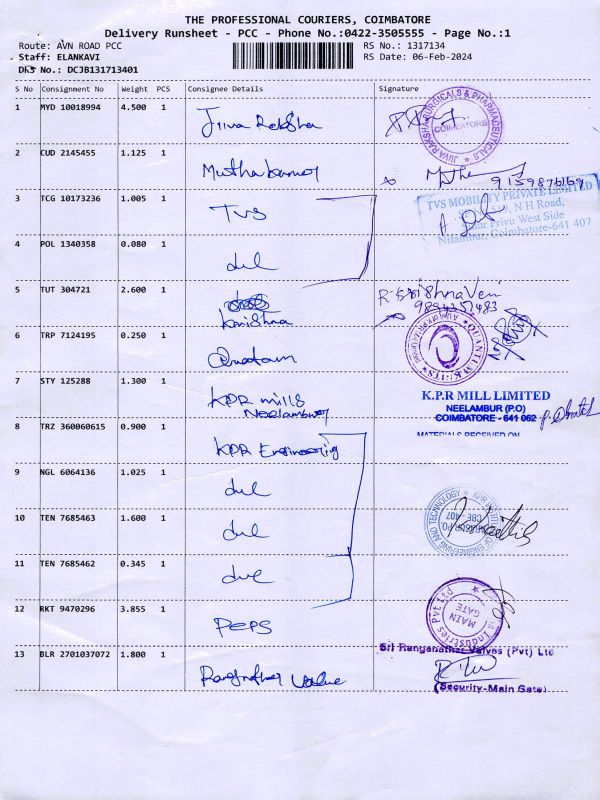 THE PROFESSIONAL COURIERS, COIMBATORE
Delivery Runsheet - PCC - Phone No.:0422-3505555 - Page No.:1
Route: AVN ROAD PCC RS No.: 1317134
Staff: ELANKAVI RS Date: 06-Feb-2024
DRS No.: DCJB131713401
S No Consignment No Weight PCS Consignee Details Signature
1 MYD 10018994 4.500 1 Jiiva Raksha
JIIVA RAKSHA SURGICALS & PHARMACEUTICALS COIMBATORE
2 CUD 2145455 1.125 1 Muthukumar
9159876169
3 TCG 10173236 1.005 1 TVS
TVS MOBILITY PRIVATE LIMITED
N H Road,
West Side
Nilambur, Coimbatore-641 407
4 POL 1340358 0.080 1 dul
5 TUT 304721 2.600 1 Krishna
R. Krishna Veni
9894357483
6 TRP 7124195 0.250 1 Quantum
QUANTUM KNITS
7 STY 125288 1.300 1 KPR mills
Neelambur
K.P.R MILL LIMITED
NEELAMBUR (P.O)
COIMBATORE - 641 062
MATERIALS RECEIVED ON
8 TRZ 360060615 0.900 1 KPR Engineering
9 NGL 6064136 1.025 1 dul
10 TEN 7685463 1.600 1 dul
KPR INSTITUTE OF ENGINEERING AND TECHNOLOGY
11 TEN 7685462 0.345 1 dul
12 RKT 9470296 3.855 1 PEPS
Industries Pvt Ltd
MAIN GATE
13 BLR 2701037072 1.800 1 Ranganathar Valve
Sri Ranganathar Valves (Pvt) Ltd
(Security-Main Gate)